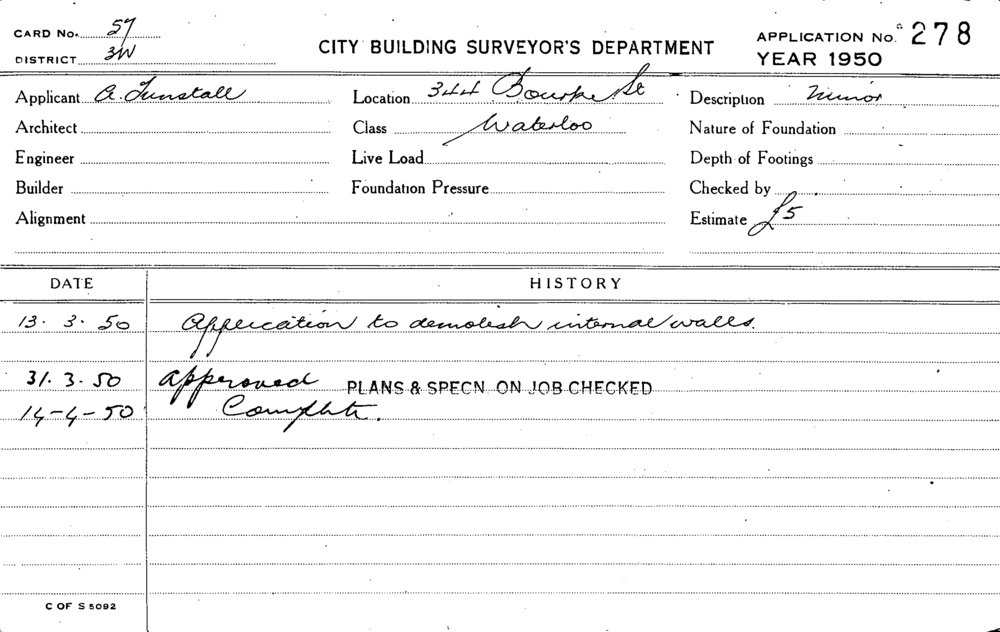 CARD No. 57
DISTRICT 3W
CITY BUILDING SURVEYOR'S DEPARTMENT
APPLICATION No. 278
YEAR 1950
Applicant A. Tunstall
Location 344 Bourke St
Description Minor
Architect
Class Waterloo
Nature of Foundation
Engineer
Live Load
Depth of Footings
Builder
Foundation Pressure
Checked by
Alignment
Estimate £5
DATE HISTORY
13. 3. 50 Application to demolish internal walls.
31. 3. 50 Approved PLANS & SPECN. ON JOB CHECKED
14-4-50 Complete.
C OF S 5092